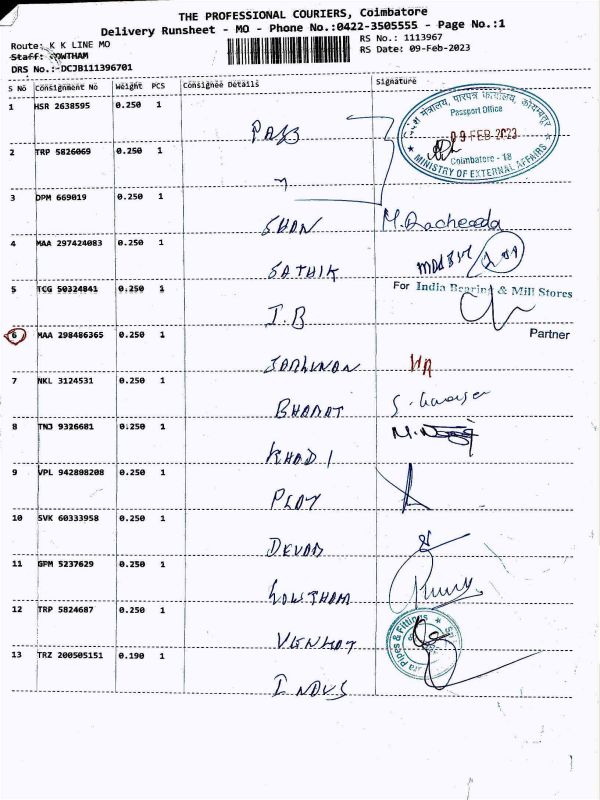 THE PROFESSIONAL COURIERS, Coimbatore
Delivery Runsheet - MO - Phone No.:0422-3505555 - Page No.:1
Route: K K LINE MO
RS No.: 1113967
Staff: GOWTHAM
RS Date: 09-Feb-2023
DRS No.:-DCJB111396701
S No Consignment No Weight PCS Consignee Details Signature
1 HSR 2638595 0.250 1
PASS
Passport Office
09 FEB 2023
Coimbatore - 18
MINISTRY OF EXTERNAL AFFAIRS
2 TRP 5826069 0.250 1
3 DPM 669019 0.250 1
SHAN M. Racheeda
4 MAA 297424083 0.250 1
SATHIK
5 TCG 50324841 0.250 1
For India Bearing & Mill Stores
I.B
Partner
6 MAA 298486365 0.250 1
NA
7 NKL 3124531 0.250 1
BHARAT
8 TNJ 9326681 0.250 1
KHADI
9 VPL 942808208 0.250 1
PLAY
10 SVK 60333958 0.250 1
DEVAN
11 GPM 5237629 0.250 1
GOWTHAM
12 TRP 5824687 0.250 1
VENKAT
Pipes & Fittings
13 TRZ 200505151 0.190 1
INDUS